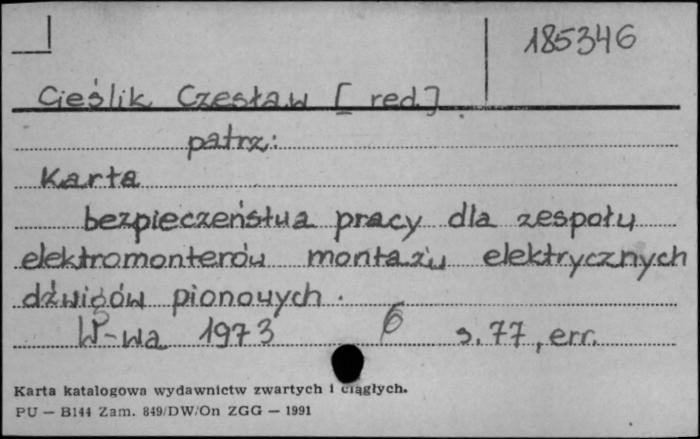 185346
Cieślik Czesław [red.]
patrz:
Karta
bezpieczeństwa pracy dla zespołu
elektromonterów montażu elektrycznych
dźwigów pionowych.
W-wa 1973 6 s. 77, err.
Karta katalogowa wydawnictw zwartych i ciągłych.
PU — B144 Zam. 849/DW/On ZGG — 1991